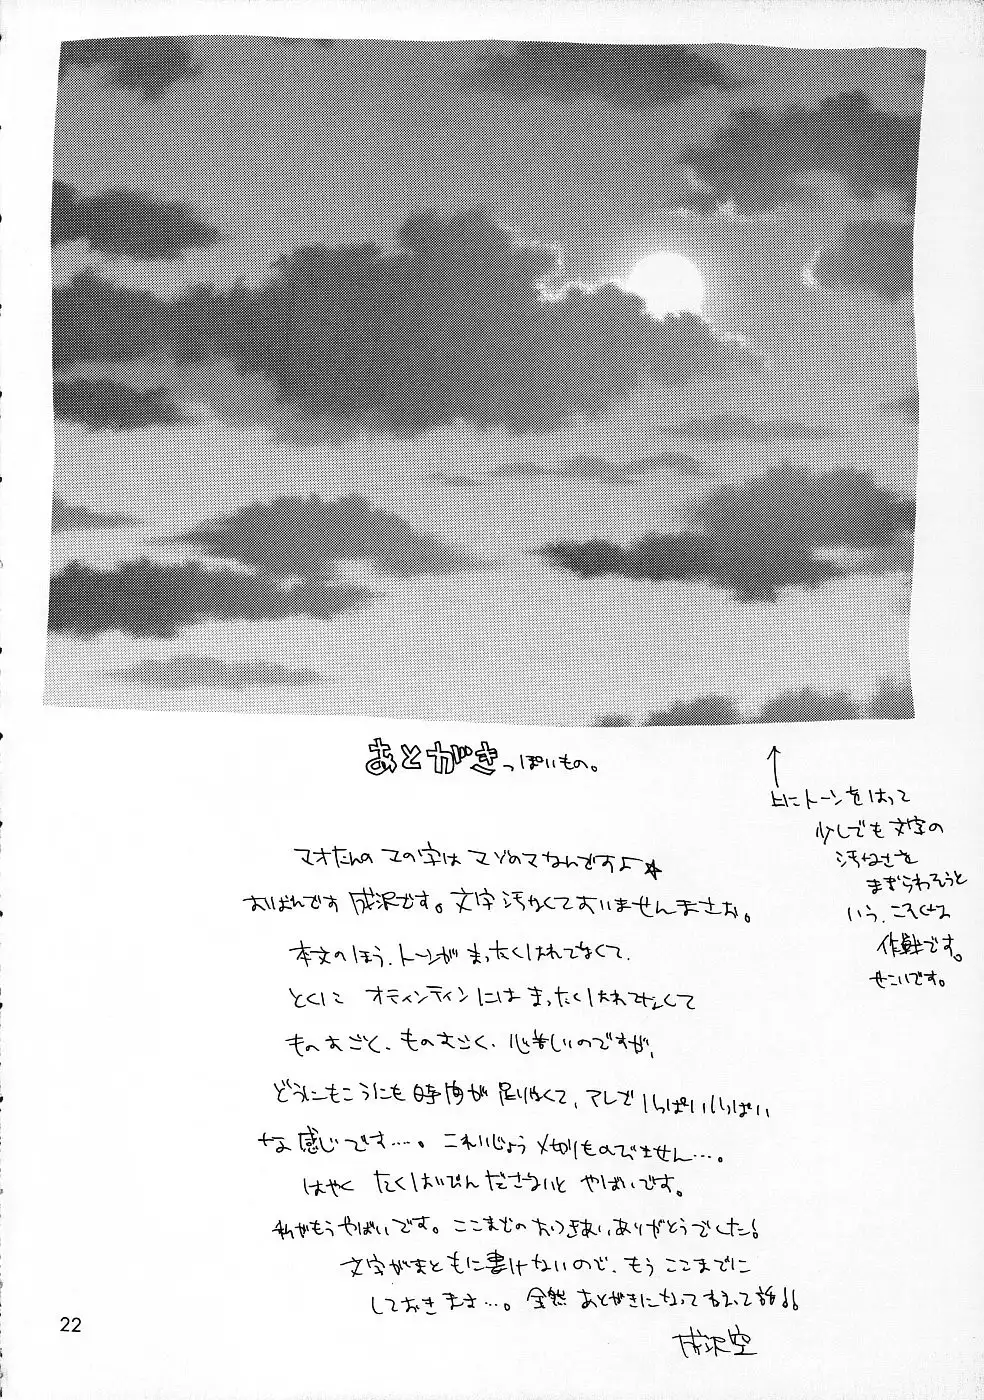 あとがきっぽいもの。
↑
上にトーンをはって
少しでも文字の
汚なさを
まぎらわそうと
いう、こそくな
作戦です。
せこいです。
マオたんのマの字はマゾのマなんですよ☆
おばんです成沢です。文字汚なくてすいませんまさな。
本文のほう、トーンがまったくはれてなくて、
とくに オティンティンにはまったくはれてなくて
ものすごく、ものすごく、心苦しいのですが、
どうにもこうにも時間が足りなくて、アレでいっぱいいっぱい
な感じです…。これいじょう〆切りものびません…。
はやく たくはいびんださないと やばいです。
私がもうやばいです。ここまでのおつきあい、ありがとうでした!
文字がまともに書けないので、もうここまでに
しておきます…。全然あとがきになってねえって話!!
成沢空
22